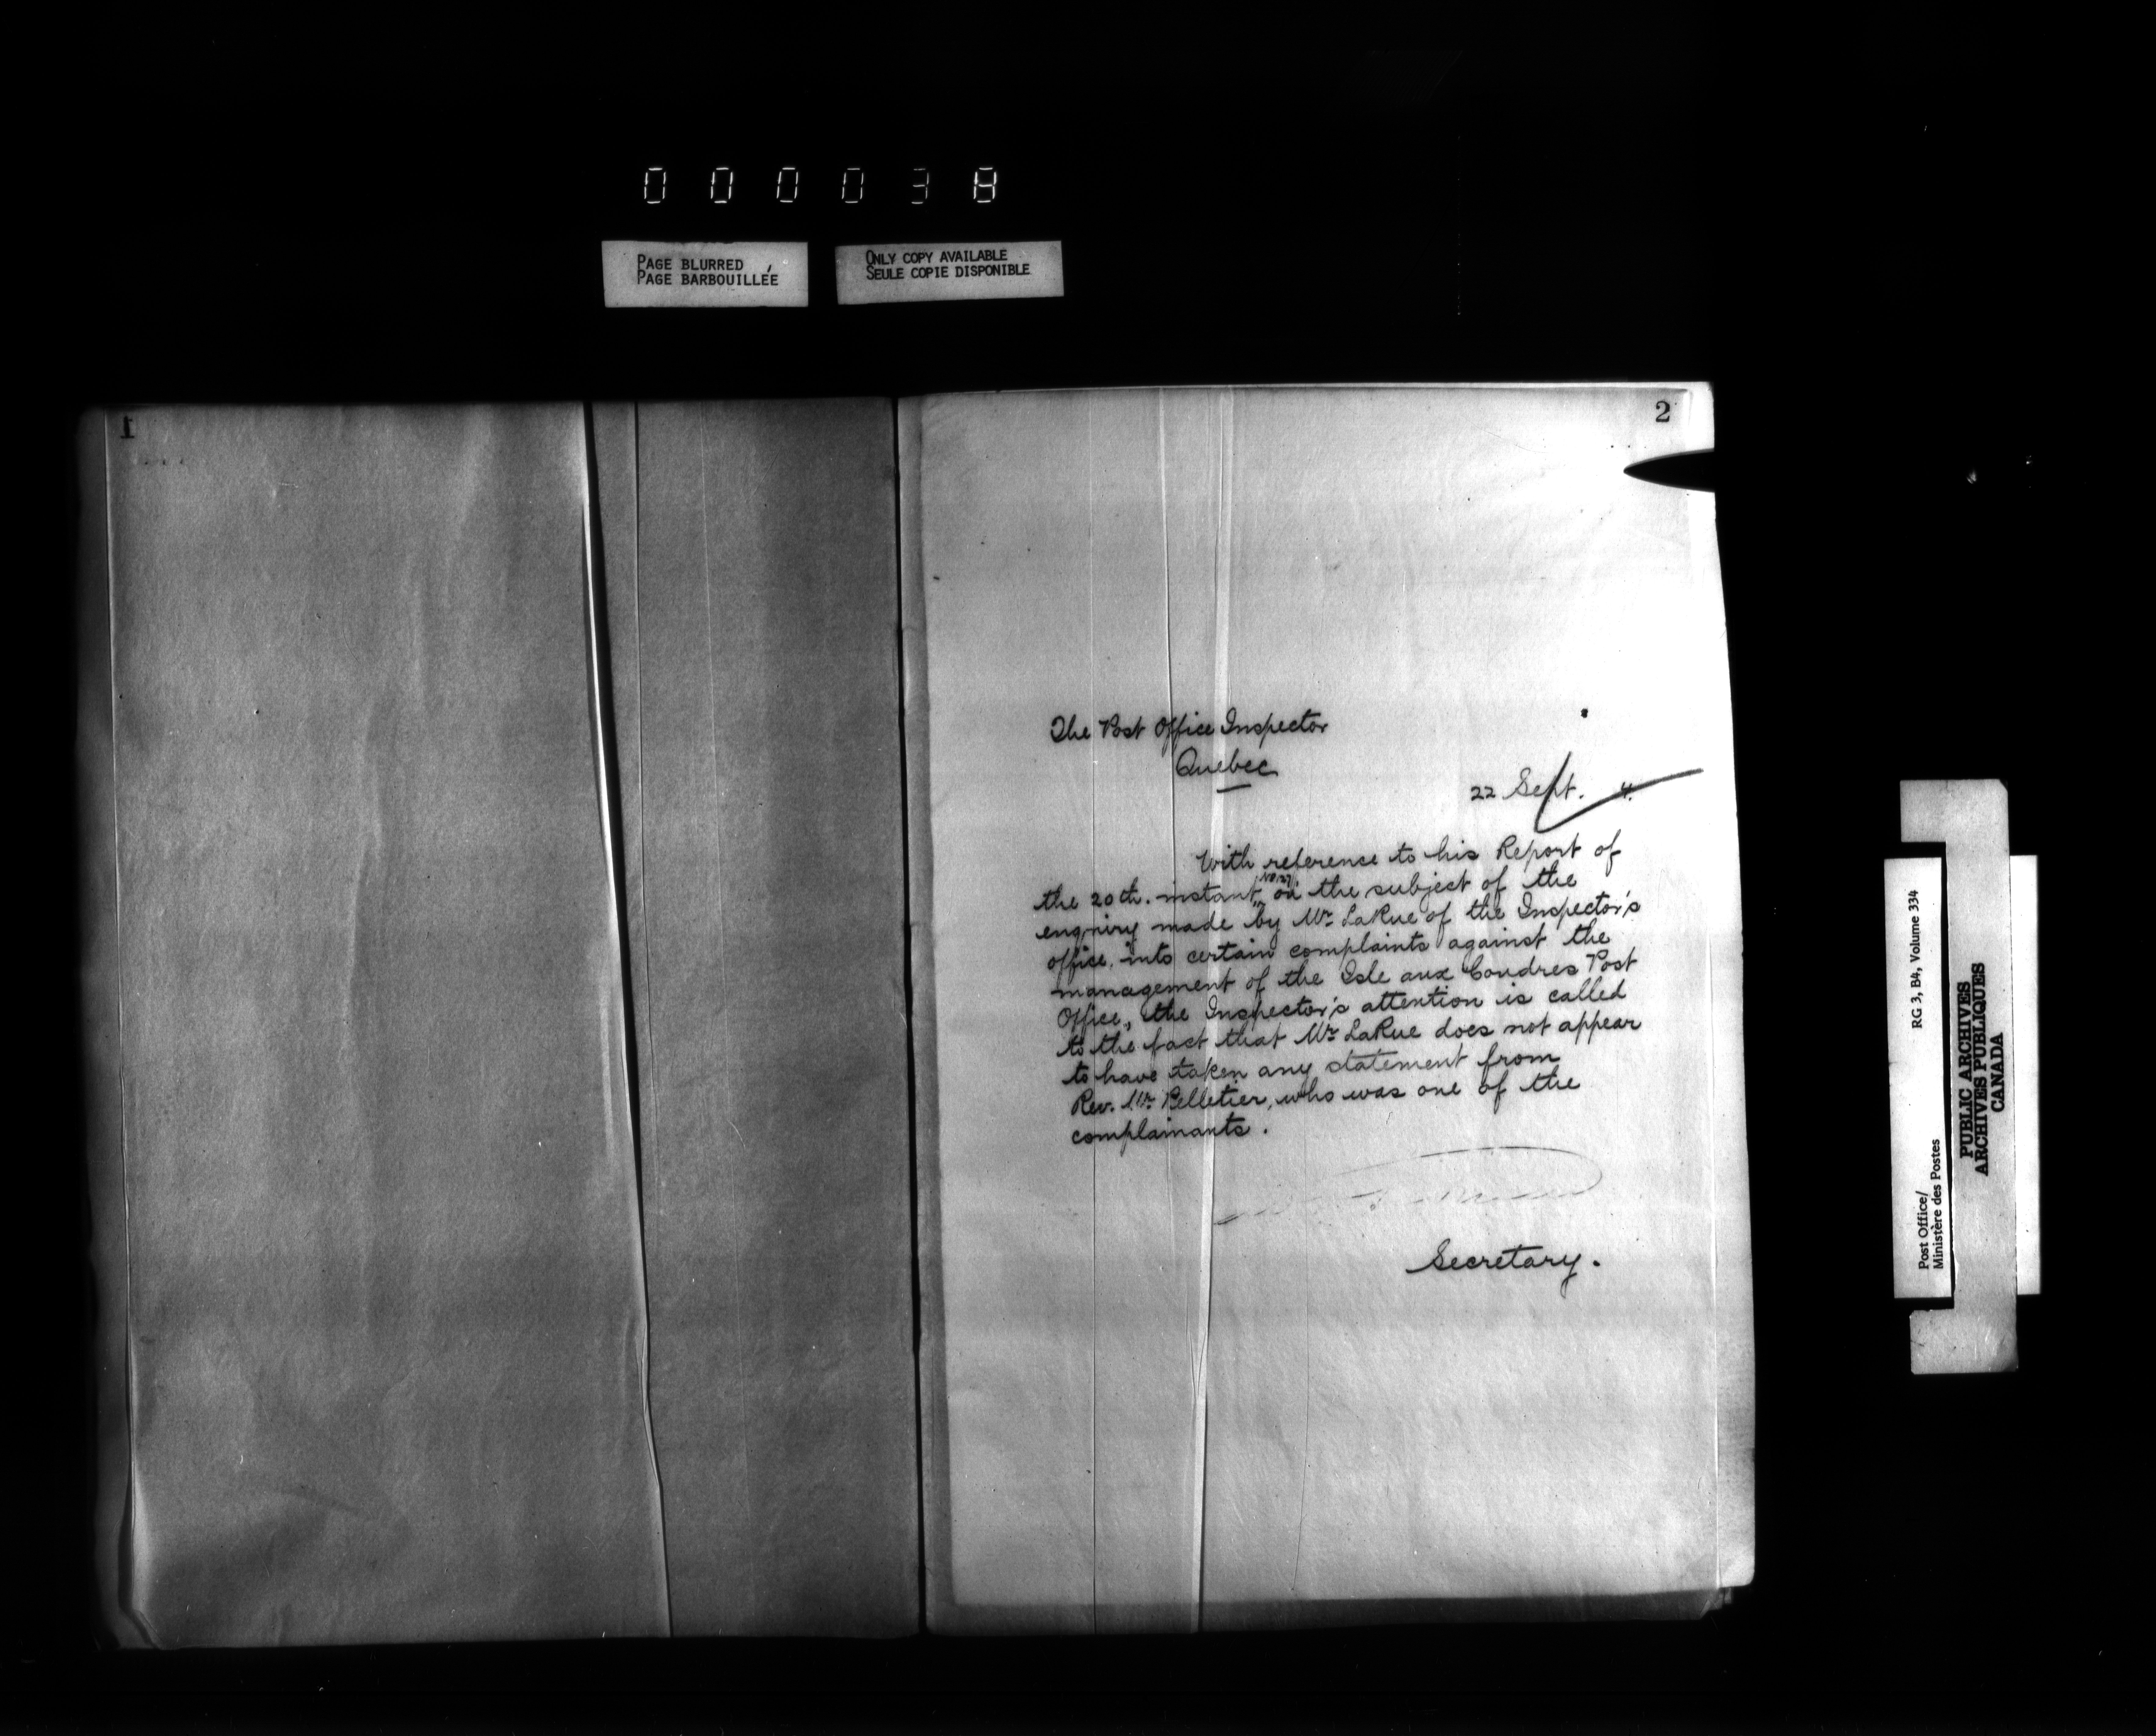 000038
PAGE BLURRED
PAGE BARBOUILLÉE
ONLY COPY AVAILABLE
SEULE COPIE DISPONIBLE
1
2
The Post Office Inspector
Quebec
22 Sept. 4.
With reference to his Report of
the 20th. instant, No. 27, on the subject of the
enquiry made by Mr. LaRue of the Inspector's
office, into certain complaints against the
management of the Isle aux Coudres Post
Office, the Inspector's attention is called
to the fact that Mr. LaRue does not appear
to have taken any statement from
Rev. Mr. Pelletier, who was one of the
complainants.
Secretary.
Post Office/
Ministère des Postes
RG 3, B4, Volume 334
PUBLIC ARCHIVES
ARCHIVES PUBLIQUES
CANADA